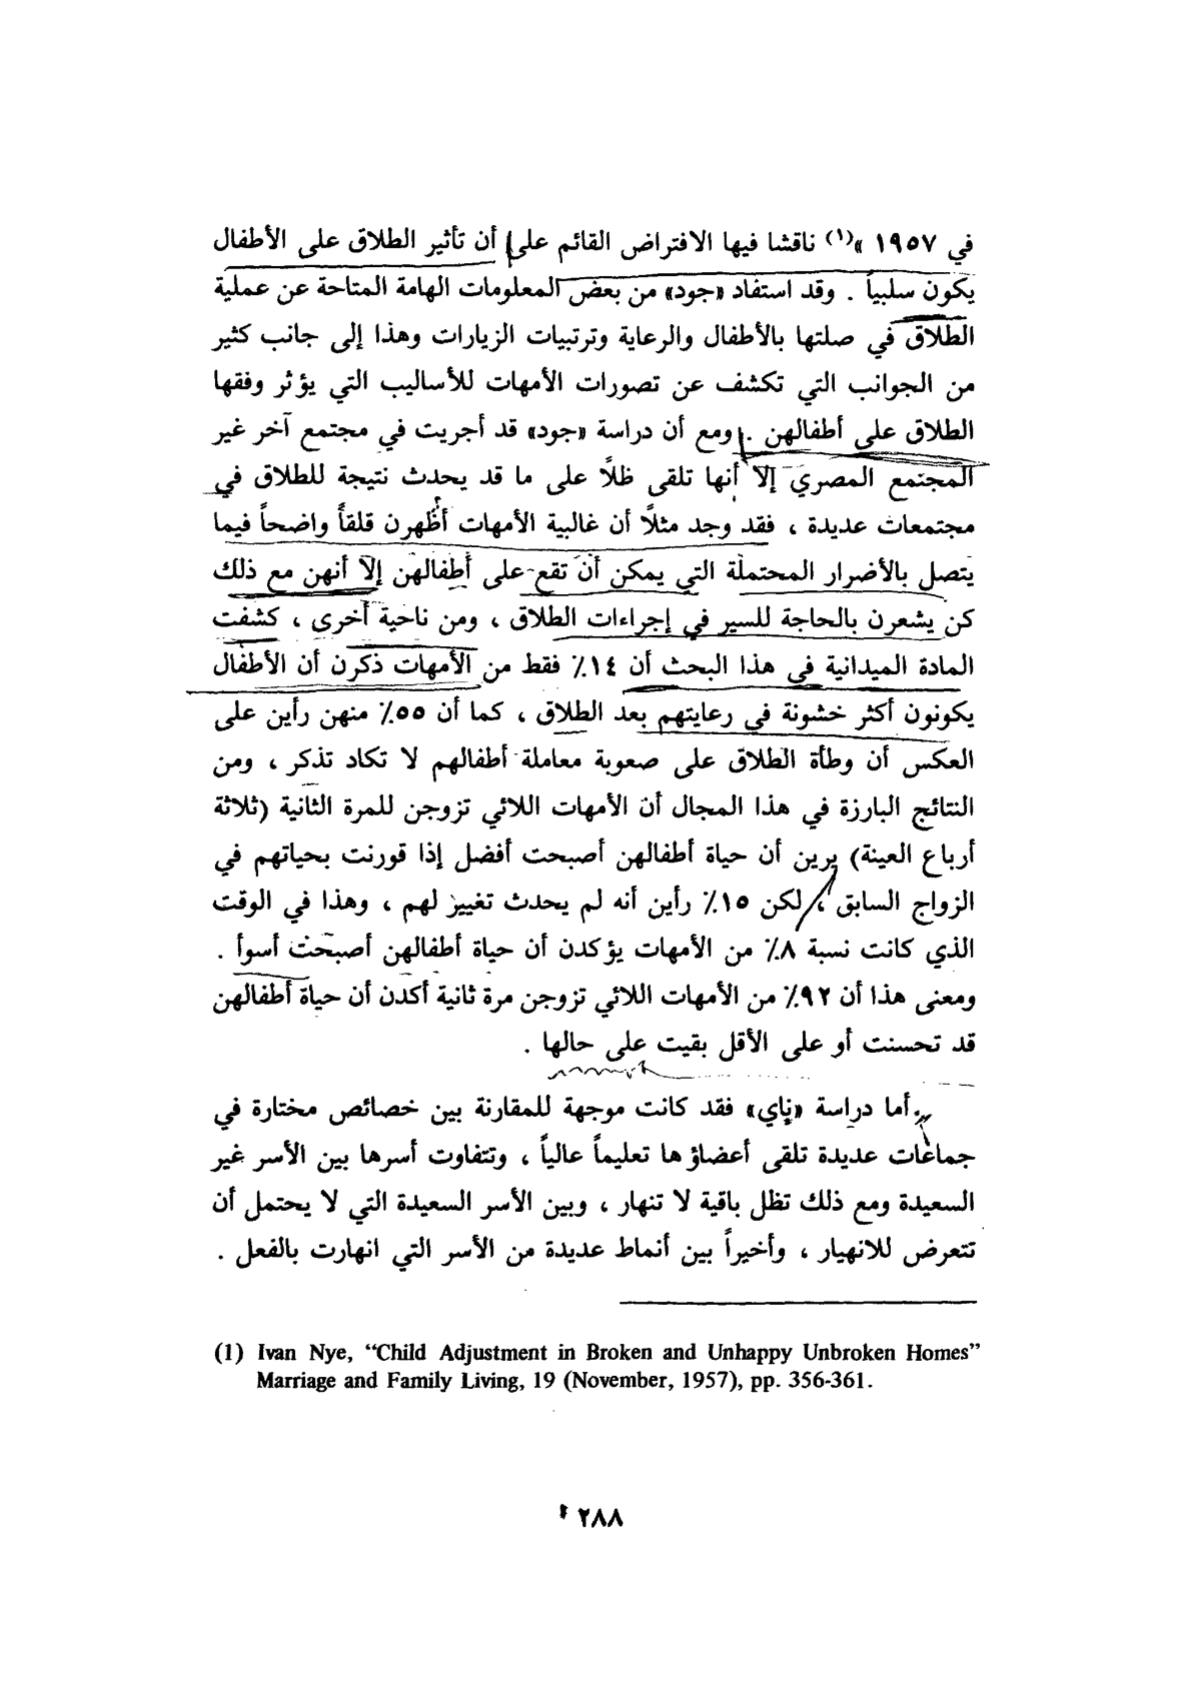 في ١٩٥٧ »(١) ناقشا فيها الافتراض القائم على أن تأثير الطلاق على الأطفال
يكون سلبياً . وقد استفاد «جود» من بعض المعلومات الهامة المتاحة عن عملية
الطلاق في صلتها بالأطفال والرعاية وترتيبات الزيارات وهذا إلى جانب كثير
من الجوانب التي تكشف عن تصورات الأمهات للأساليب التي يؤثر وفقها
الطلاق على أطفالهن . ومع أن دراسة «جود» قد أجريت في مجتمع آخر غير
المجتمع المصري إلا أنها تلقى ظلاً على ما قد يحدث نتيجة للطلاق في
مجتمعات عديدة ، فقد وجد مثلاً أن غالبية الأمهات أظهرن قلقاً واضحاً فيما
يتصل بالأضرار المحتملة التي يمكن أن تقع على أطفالهن إلا أنهن مع ذلك
كن يشعرن بالحاجة للسير في إجراءات الطلاق ، ومن ناحية أخرى ، كشفت
المادة الميدانية في هذا البحث أن ١٤٪ فقط من الأمهات ذكرن أن الأطفال
يكونون أكثر خشونة في رعايتهم بعد الطلاق ، كما أن ٥٥٪ منهن رأين على
العكس أن وطأة الطلاق على صعوبة معاملة أطفالهم لا تكاد تذكر ، ومن
النتائج البارزة في هذا المجال أن الأمهات اللائي تزوجن للمرة الثانية (ثلاثة
أرباع العينة) يرين أن حياة أطفالهن أصبحت أفضل إذا قورنت بحياتهم في
الزواج السابق ، لكن ١٥٪ رأين أنه لم يحدث تغيير لهم ، وهذا في الوقت
الذي كانت نسبة ٨٪ من الأمهات يؤكدن أن حياة أطفالهن أصبحت أسوأ .
ومعنى هذا أن ٩٢٪ من الأمهات اللائي تزوجن مرة ثانية أكدن أن حياة أطفالهن
قد تحسنت أو على الأقل بقيت على حالها .
أما دراسة «ناي» فقد كانت موجهة للمقارنة بين خصائص مختارة في
جماعات عديدة تلقى أعضاؤها تعليماً عالياً ، وتتفاوت أسرها بين الأسر غير
السعيدة ومع ذلك تظل باقية لا تنهار ، وبين الأسر السعيدة التي لا يحتمل أن
تتعرض للانهيار ، وأخيراً بين أنماط عديدة من الأسر التي انهارت بالفعل .
(1) Ivan Nye, “Child Adjustment in Broken and Unhappy Unbroken Homes”
Marriage and Family Living, 19 (November, 1957), pp. 356-361.
٢٨٨